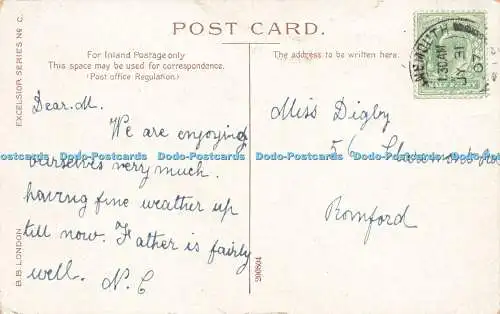 POST CARD.
For Inland Postage only
This space may be used for correspondence.
(Post office Regulation.)
The address to be written here.
EXCELSIOR SERIES No C.
B.B. LONDON
WEYMOUTH
7 30 AM
JY 31
07
Dear M.
We are enjoying
ourselves very much.
having fine weather up
till now. Father is fairly
well. N. C
Miss Digby
56
Romford
200804
Dodo-Postcards Dodo-Postcards Dodo-Postcards Dodo-Postcards Dodo-Postcards Dodo-Postcards